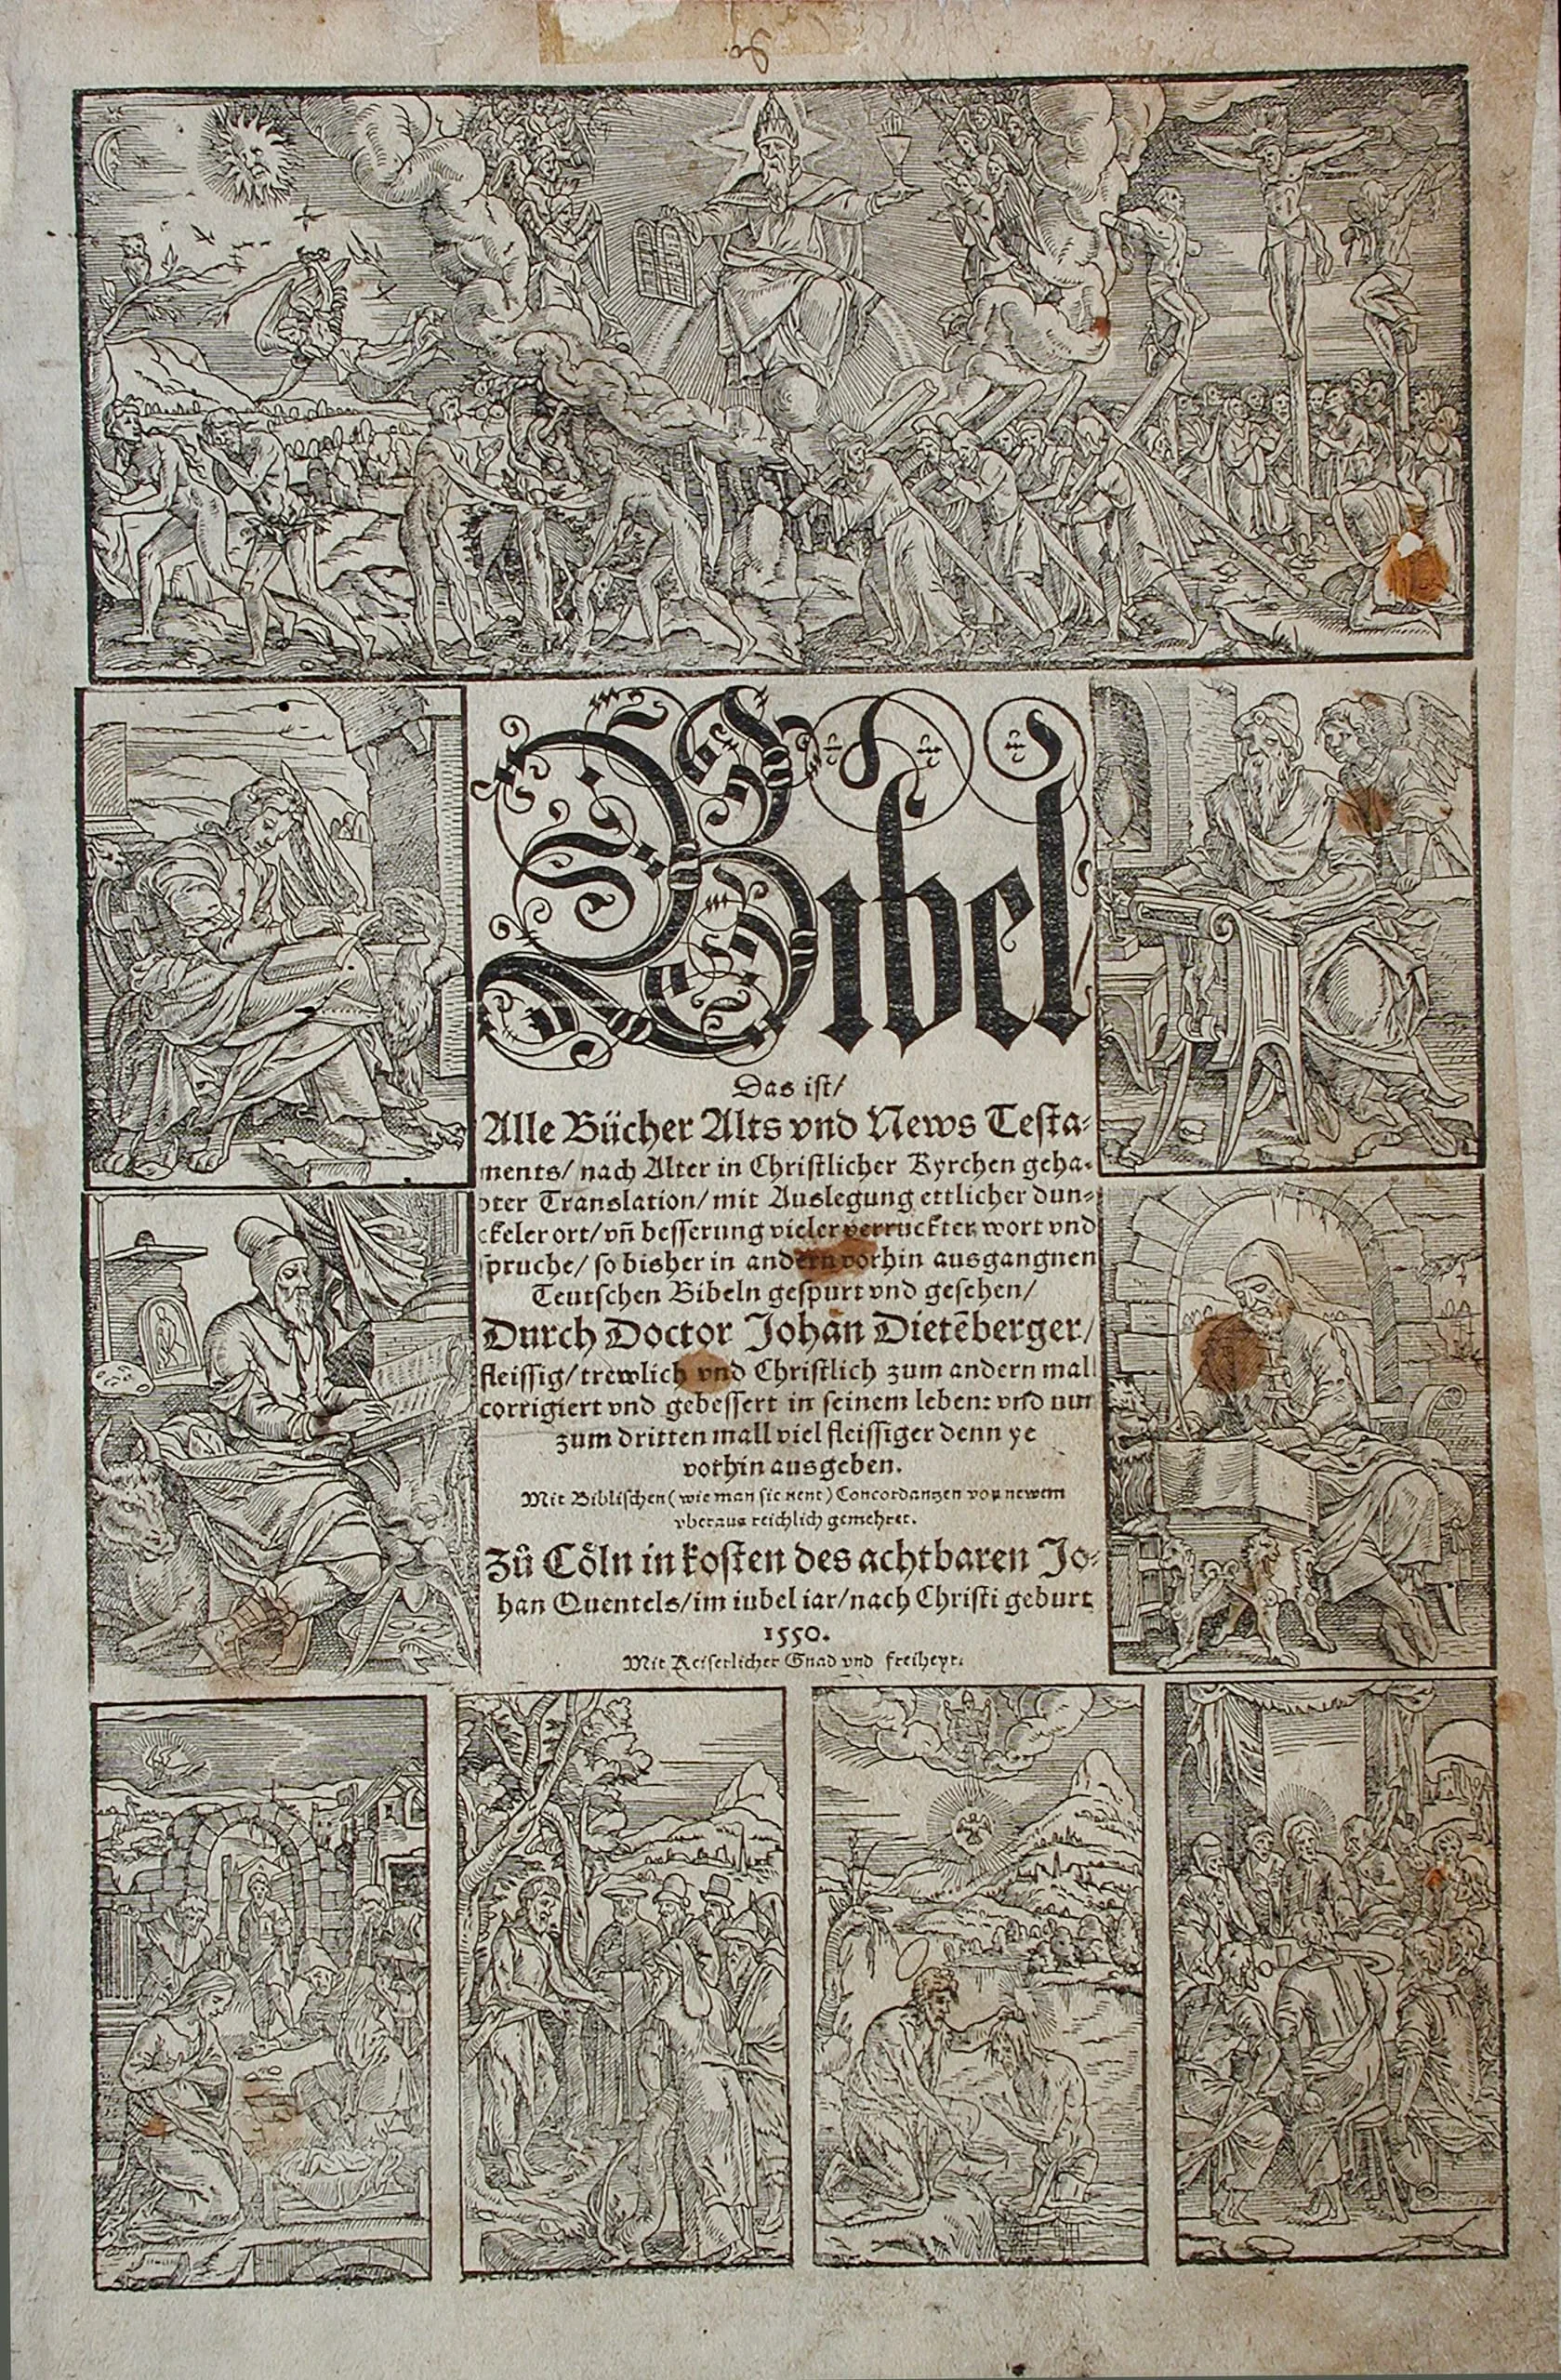 Bibel
Das ist/
Alle Bücher Alts vnd News Testa-
ments/ nach Alter in Christlicher Kyrchen geha-
bter Translation/ mit Auslegung ettlicher dun-
ckeler ort/ vñ besserung vieler verruckter wort vnd
spruche/ so bisher in andern vorhin ausgangnen
Teutschen Bibeln gespurt vnd gesehen/
Durch Doctor Johan Dietẽberger/
fleissig/ trewlich vnd Christlich zum andern mall
corrigiert vnd gebessert in seinem leben: vnd nun
zum dritten mall viel fleissiger denn ye
vorhin ausgeben.
Mit Biblischen (wie man sie nent) Concordantzen von newem
vberaus reichlich gemehret.
Zů Cöln in kosten des achtbaren Jo-
han Quentels/ im iubel iar/ nach Christi geburt
1550.
Mit Keiserlicher Gnad vnd freiheyt.